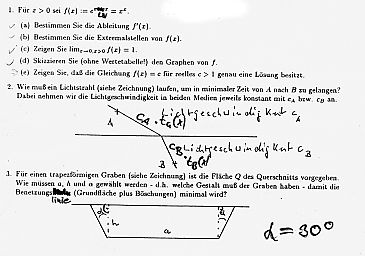 1. Für x > 0 sei f(x) := e^{x log x} = x^x.
(a) Bestimmen Sie die Ableitung f'(x).
(b) Bestimmen Sie die Extremalstellen von f(x).
(c) Zeigen Sie lim_{x→0,x>0} f(x) = 1.
(d) Skizzieren Sie (ohne Wertetabelle!) den Graphen von f.
(e) Zeigen Sie, daß die Gleichung f(x) = c für reelles c > 1 genau eine Lösung besitzt.
2. Wie muß ein Lichtstrahl (siehe Zeichnung) laufen, um in minimaler Zeit von A nach B zu gelangen?
Dabei nehmen wir die Lichtgeschwindigkeit in beiden Medien jeweils konstant mit c_A bzw. c_B an.
Lichtgeschwindigkeit c_A
A c_A · t_A(x)
c_B Lichtgeschwindigkeit c_B
B t_B(x)
3. Für einen trapezförmigen Graben (siehe Zeichnung) ist die Fläche Q des Querschnitts vorgegeben.
Wie müssen a, h und α gewählt werden - d.h. welche Gestalt muß der Graben haben - damit die
Benetzungs (Grundfläche plus Böschungen) minimal wird?
linie
α h α
a
α = 30°